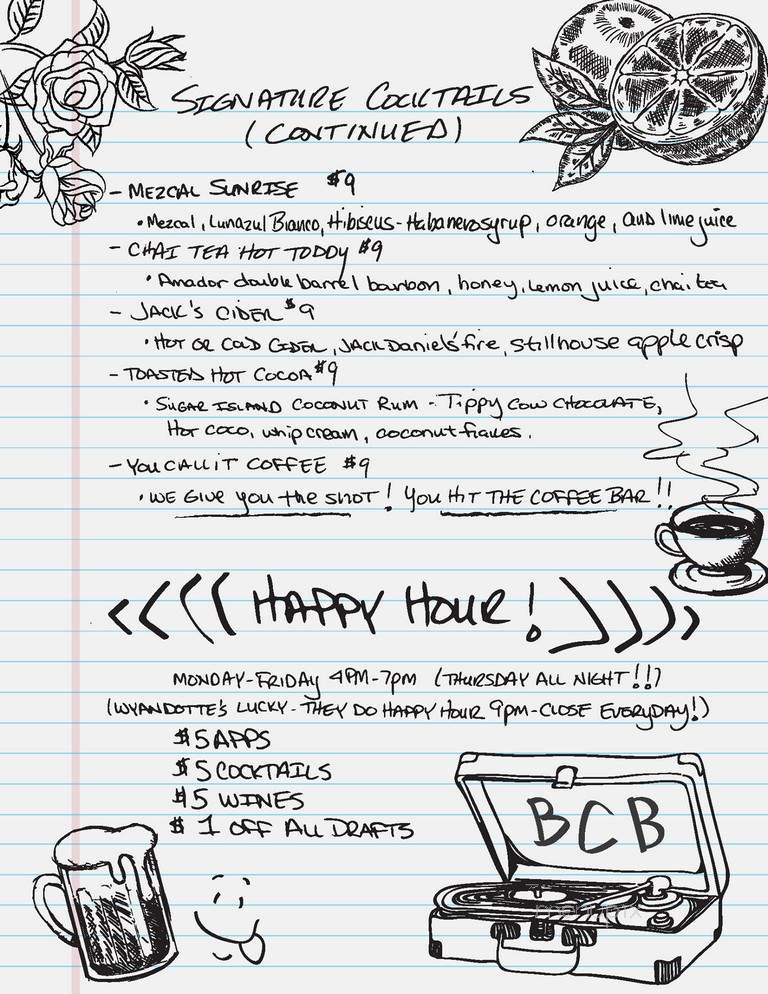 SIGNATURE COCKTAILS
(CONTINUED)
- MEZCAL SUNRISE $9
• Mezcal, Lunazul Bianco, Hibiscus-Habanerosyrup, orange, and lime juice
- CHAI TEA HOT TODDY $9
• Amador double barrel bourbon, honey, Lemon juice, chai tea
- JACK'S CIDER $9
• HOT OR COLD CIDER, JACK Daniels' fire, Stillhouse apple crisp
- TOASTED HOT COCOA $9
• SUGAR ISLAND COCONUT RUM - Tippy COW CHOCOLATE,
Hot coco, whip cream, coconut flakes.
- YOU CALL iT COFFEE $9
• WE GIVE you the SHOT! YOU HIT THE COFFEE BAR!!
<<(( HAPPY HOUR! )))>
MONDAY-FRIDAY 4PM-7pm (THURSDAY ALL NIGHT!!)
(WYANDOTTE'S LUCKY - THEY DO HAPPY HOUR 9pm-CLOSE EVERYDAY!)
$5 APPS
$5 COCKTAILS
$5 WINES
$1 OFF ALL DRAFTS
BCB